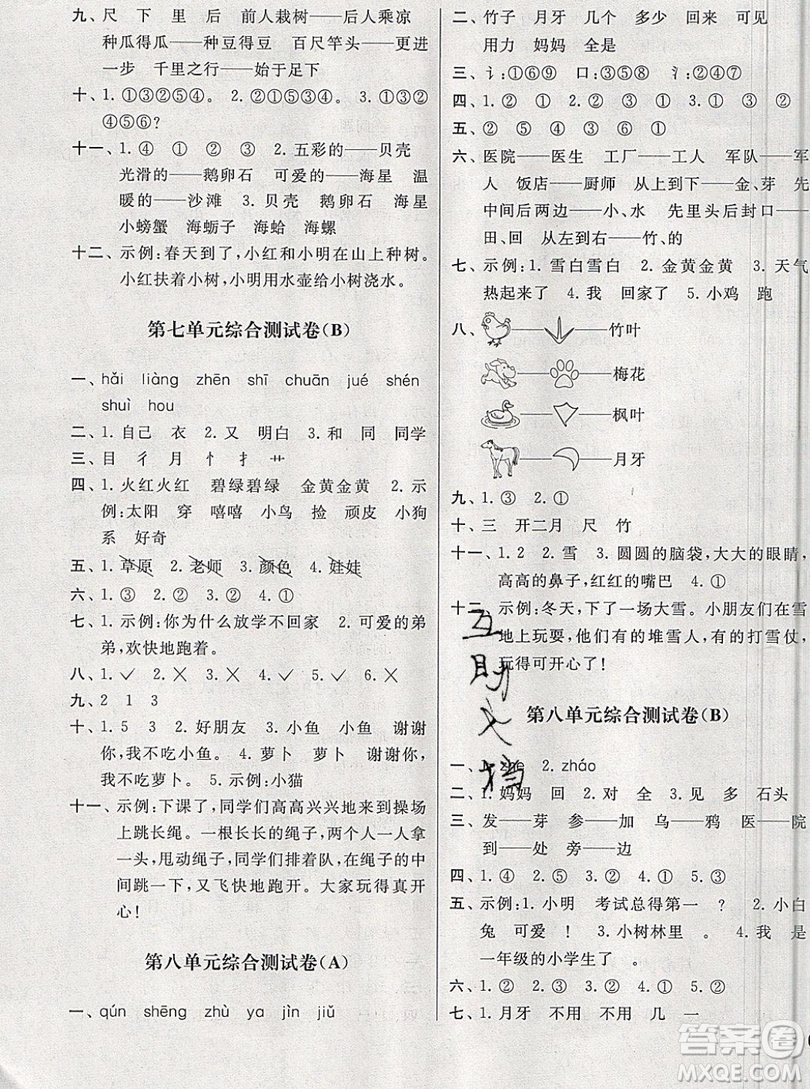 九、尺 下 里 后 前人栽树——后人乘凉
种瓜得瓜——种豆得豆 百尺竿头——更进
一步 千里之行——始于足下
十、1.①③②⑤④。 2.②①⑤③④。 3.①③②
④⑤⑥?
十一、1.④ ① ③ ② 2.五彩的——贝壳
光滑的——鹅卵石 可爱的——海星 温
暖的——沙滩 3.贝壳 鹅卵石 海星
小螃蟹 海蛎子 海蛤 海螺
十二、示例:春天到了,小红和小明在山上种树。
小红扶着小树,小明用水壶给小树浇水。
第七单元综合测试卷(B)
一、hǎi liàng zhēn shī chuān jué shén
shuì hou
二、1.自己 衣 2.又 明白 3.和 同 同学
三、目 彳 月 忄 扌 艹
四、1.火红火红 碧绿碧绿 金黄金黄 2.示
例:太阳 穿 嘻嘻 小鸟 捡 顽皮 小狗
系 好奇
五、1.草原 2.老师 3.颜色 4.娃娃
六、1.③ 2.③ 3.② 4.①
七、1.示例:你为什么放学不回家 2.可爱的弟
弟,欢快地跑着。
八、1.✓ 2.✕ 3.✓ 4.✕ 5.✓ 6.✕
九、2 1 3
十、1.5 3 2.好朋友 3.小鱼 小鱼 谢谢
你,我不吃小鱼。 4.萝卜 萝卜 谢谢
你,我不吃萝卜。 5.示例:小猫
十一、示例:下课了,同学们高高兴兴地来到操场
上跳长绳。一根长长的绳子,两个人一人一
头,甩动绳子,同学们排着队,在绳子的中
间跳一下,又飞快地跑开。大家玩得真开
心!
第八单元综合测试卷(A)
一、qún shēng zhù ya jìn jiǔ
二、竹子 月牙 几个 多少 回来 可以
用力 妈妈 全是
三、讠:①⑥⑨ 口:③⑤⑧ 氵:②④⑦
四、1.② ① 2.② ① 3.① ②
五、② ④ ⑤ ③ ⑥ ①
六、医院——医生 工厂——工人 军队——军
人 饭店——厨师 从上到下——金、芽 先
中间后两边——小、水 先里头后封口——
田、回 从左到右——竹、的
七、示例:1.雪白雪白 2.金黄金黄 3.天气
热起来了 4.我 回家了 5.小鸡 跑
八、
——竹叶
——梅花
——枫叶
——月牙
九、1.③ 2.①
十、三 开二月 尺 竹
十一、1.2 2.雪 3.圆圆的脑袋,大大的眼睛,
高高的鼻子,红红的嘴巴 4.①
十二、示例:冬天,下了一场大雪。小朋友们在雪
地上玩耍,他们有的堆雪人,有的打雪仗,
玩得可开心了!
互助文档
第八单元综合测试卷(B)
一、 2.zháo
二、1.妈妈 回 2.对 全 3.见 多 石头
三、发——芽 参——加 乌——鸦 医——院
到——处 旁——边
四、1.④ 2.⑤ 3.② 4.① 5.③
五、示例:1.小明 考试总得第一 ? 2.小白
兔 可爱 ! 3.小树林里 。 4.我 是
一年级的小学生了 。
六、1.① ② 2.② ① 3.① ②
七、1.月牙 不用 不用 几 一
答案圈
MXQE.COM